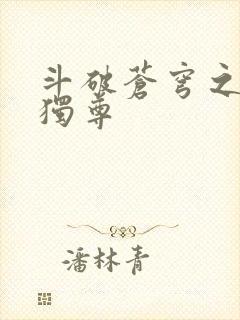 斗破蒼穹之
獨尊
潘林青